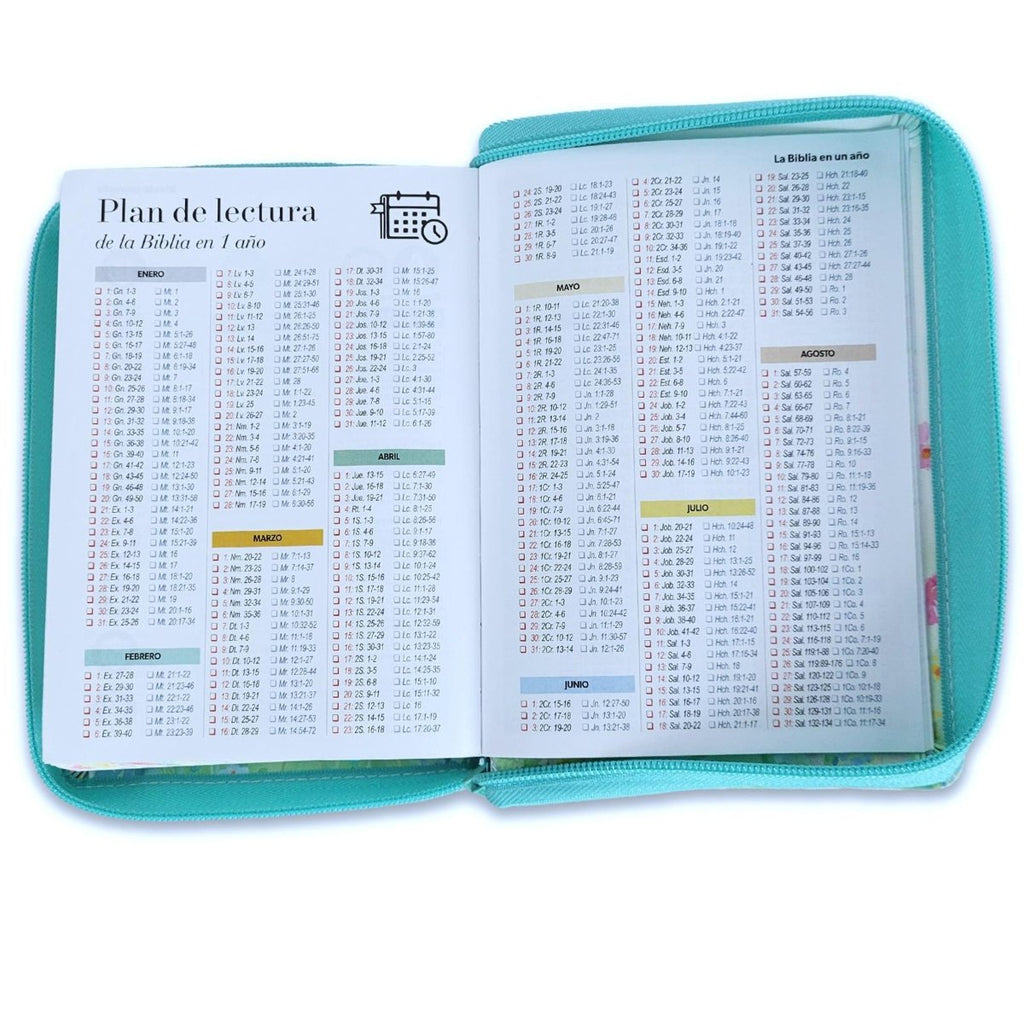 Plan de lectura
de la Biblia en 1 año
ENERO
1: Gn. 1-3 Mt. 1
2: Gn. 4-6 Mt. 2
3: Gn. 7-9 Mt. 3
4: Gn. 10-12 Mt. 4
5: Gn. 13-15 Mt. 5:1-26
6: Gn. 16-17 Mt. 5:27-48
7: Gn. 18-19 Mt. 6:1-18
8: Gn. 20-22 Mt. 6:19-34
9: Gn. 23-24 Mt. 7
10: Gn. 25-26 Mt. 8:1-17
11: Gn. 27-28 Mt. 8:18-34
12: Gn. 29-30 Mt. 9:1-17
13: Gn. 31-32 Mt. 9:18-38
14: Gn. 33-35 Mt. 10:1-20
15: Gn. 36-38 Mt. 10:21-42
16: Gn. 39-40 Mt. 11
17: Gn. 41-42 Mt. 12:1-23
18: Gn. 43-45 Mt. 12:24-50
19: Gn. 46-48 Mt. 13:1-30
20: Gn. 49-50 Mt. 13:31-58
21: Ex. 1-3 Mt. 14:1-21
22: Ex. 4-6 Mt. 14:22-36
23: Ex. 7-8 Mt. 15:1-20
24: Ex. 9-11 Mt. 15:21-39
25: Ex. 12-13 Mt. 16
26: Ex. 14-15 Mt. 17
27: Ex. 16-18 Mt. 18:1-20
28: Ex. 19-20 Mt. 18:21-35
29: Ex. 21-22 Mt. 19
30: Ex. 23-24 Mt. 20:1-16
31: Ex. 25-26 Mt. 20:17-34
FEBRERO
1: Ex. 27-28 Mt. 21:1-22
2: Ex. 29-30 Mt. 21:23-46
3: Ex. 31-33 Mt. 22:1-22
4: Ex. 34-35 Mt. 22:23-46
5: Ex. 36-38 Mt. 23:1-22
6: Ex. 39-40 Mt. 23:23-39
7: Lv. 1-3 Mt. 24:1-28
8: Lv. 4-5 Mt. 24:29-51
9: Lv. 6-7 Mt. 25:1-30
10: Lv. 8-10 Mt. 25:31-46
11: Lv. 11-12 Mt. 26:1-25
12: Lv. 13 Mt. 26:26-50
13: Lv. 14 Mt. 26:51-75
14: Lv. 15-16 Mt. 27:1-26
15: Lv. 17-18 Mt. 27:27-50
16: Lv. 19-20 Mt. 27:51-66
17: Lv. 21-22 Mt. 28
18: Lv. 23-24 Mr. 1:1-22
19: Lv. 25 Mr. 1:23-45
20: Lv. 26-27 Mr. 2
21: Nm. 1-2 Mr. 3:1-19
22: Nm. 3-4 Mr. 3:20-35
23: Nm. 5-6 Mr. 4:1-20
24: Nm. 7-8 Mr. 4:21-41
25: Nm. 9-11 Mr. 5:1-20
26: Nm. 12-14 Mr. 5:21-43
27: Nm. 15-16 Mr. 6:1-29
28: Nm. 17-19 Mr. 6:30-56
MARZO
1: Nm. 20-22 Mr. 7:1-13
2: Nm. 23-25 Mr. 7:14-37
3: Nm. 26-28 Mr. 8
4: Nm. 29-31 Mr. 9:1-29
5: Nm. 32-34 Mr. 9:30-50
6: Nm. 35-36 Mr. 10:1-31
7: Dt. 1-3 Mr. 10:32-52
8: Dt. 4-6 Mr. 11:1-18
9: Dt. 7-9 Mr. 11:19-33
10: Dt. 10-12 Mr. 12:1-27
11: Dt. 13-15 Mr. 12:28-44
12: Dt. 16-18 Mr. 13:1-20
13: Dt. 19-21 Mr. 13:21-37
14: Dt. 22-24 Mr. 14:1-26
15: Dt. 25-27 Mr. 14:27-53
16: Dt. 28-29 Mr. 14:54-72
17: Dt. 30-31 Mr. 15:1-25
18: Dt. 32-34 Mr. 15:26-47
19: Jos. 1-3 Mr. 16
20: Jos. 4-6 Lc. 1:1-20
21: Jos. 7-9 Lc. 1:21-38
22: Jos. 10-12 Lc. 1:39-56
23: Jos. 13-15 Lc. 1:57-80
24: Jos. 16-18 Lc. 2:1-24
25: Jos. 19-21 Lc. 2:25-52
26: Jos. 22-24 Lc. 3
27: Jue. 1-3 Lc. 4:1-30
28: Jue. 4-6 Lc. 4:31-44
29: Jue. 7-8 Lc. 5:1-16
30: Jue. 9-10 Lc. 5:17-39
31: Jue. 11-12 Lc. 6:1-26
ABRIL
1: Jue. 13-15 Lc. 6:27-49
2: Jue. 16-18 Lc. 7:1-30
3: Jue. 19-21 Lc. 7:31-50
4: Rt. 1-4 Lc. 8:1-25
5: 1S. 1-3 Lc. 8:26-56
6: 1S. 4-6 Lc. 9:1-17
7: 1S. 7-9 Lc. 9:18-36
8: 1S. 10-12 Lc. 9:37-62
9: 1S. 13-14 Lc. 10:1-24
10: 1S. 15-16 Lc. 10:25-42
11: 1S. 17-18 Lc. 11:1-28
12: 1S. 19-21 Lc. 11:29-54
13: 1S. 22-24 Lc. 12:1-31
14: 1S. 25-26 Lc. 12:32-59
15: 1S. 27-29 Lc. 13:1-22
16: 1S. 30-31 Lc. 13:23-35
17: 2S. 1-2 Lc. 14:1-24
18: 2S. 3-5 Lc. 14:25-35
19: 2S. 6-8 Lc. 15:1-10
20: 2S. 9-11 Lc. 15:11-32
21: 2S. 12-13 Lc. 16
22: 2S. 14-15 Lc. 17:1-19
23: 2S. 16-18 Lc. 17:20-37
La Biblia en un año
24: 2S. 19-20 Lc. 18:1-23
25: 2S. 21-22 Lc. 18:24-43
26: 2S. 23-24 Lc. 19:1-27
27: 1R. 1-2 Lc. 19:28-48
28: 1R. 3-5 Lc. 20:1-26
29: 1R. 6-7 Lc. 20:27-47
30: 1R. 8-9 Lc. 21:1-19
MAYO
1: 1R. 10-11 Lc. 21:20-38
2: 1R. 12-13 Lc. 22:1-30
3: 1R. 14-15 Lc. 22:31-46
4: 1R. 16-18 Lc. 22:47-71
5: 1R. 19-20 Lc. 23:1-25
6: 1R. 21-22 Lc. 23:26-56
7: 2R. 1-3 Lc. 24:1-35
8: 2R. 4-6 Lc. 24:36-53
9: 2R. 7-9 Jn. 1:1-28
10: 2R. 10-12 Jn. 1:29-51
11: 2R. 13-14 Jn. 2
12: 2R. 15-16 Jn. 3:1-18
13: 2R. 17-18 Jn. 3:19-36
14: 2R. 19-21 Jn. 4:1-30
15: 2R. 22-23 Jn. 4:31-54
16: 2R. 24-25 Jn. 5:1-24
17: 1Cr. 1-3 Jn. 5:25-47
18: 1Cr. 4-6 Jn. 6:1-21
19: 1Cr. 7-9 Jn. 6:22-44
20: 1Cr. 10-12 Jn. 6:45-71
21: 1Cr. 13-15 Jn. 7:1-27
22: 1Cr. 16-18 Jn. 7:28-53
23: 1Cr. 19-21 Jn. 8:1-27
24: 1Cr. 22-24 Jn. 8:28-59
25: 1Cr. 25-27 Jn. 9:1-23
26: 1Cr. 28-29 Jn. 9:24-41
27: 2Cr. 1-3 Jn. 10:1-23
28: 2Cr. 4-6 Jn. 10:24-42
29: 2Cr. 7-9 Jn. 11:1-29
30: 2Cr. 10-12 Jn. 11:30-57
31: 2Cr. 13-14 Jn. 12:1-26
JUNIO
1: 2Cr. 15-16 Jn. 12:27-50
2: 2Cr. 17-18 Jn. 13:1-20
3: 2Cr. 19-20 Jn. 13:21-38
4: 2Cr. 21-22 Jn. 14
5: 2Cr. 23-24 Jn. 15
6: 2Cr. 25-27 Jn. 16
7: 2Cr. 28-29 Jn. 17
8: 2Cr. 30-31 Jn. 18:1-18
9: 2Cr. 32-33 Jn. 18:19-40
10: 2Cr. 34-36 Jn. 19:1-22
11: Esd. 1-2 Jn. 19:23-42
12: Esd. 3-5 Jn. 20
13: Esd. 6-8 Jn. 21
14: Esd. 9-10 Hch. 1
15: Neh. 1-3 Hch. 2:1-21
16: Neh. 4-6 Hch. 2:22-47
17: Neh. 7-9 Hch. 3
18: Neh. 10-11 Hch. 4:1-22
19: Neh. 12-13 Hch. 4:23-37
20: Est. 1-2 Hch. 5:1-21
21: Est. 3-5 Hch. 5:22-42
22: Est. 6-8 Hch. 6
23: Est. 9-10 Hch. 7:1-21
24: Job. 1-2 Hch. 7:22-43
25: Job. 3-4 Hch. 7:44-60
26: Job. 5-7 Hch. 8:1-25
27: Job. 8-10 Hch. 8:26-40
28: Job. 11-13 Hch. 9:1-21
29: Job. 14-16 Hch. 9:22-43
30: Job. 17-19 Hch. 10:1-23
JULIO
1: Job. 20-21 Hch. 10:24-48
2: Job. 22-24 Hch. 11
3: Job. 25-27 Hch. 12
4: Job. 28-29 Hch. 13:1-25
5: Job. 30-31 Hch. 13:26-52
6: Job. 32-33 Hch. 14
7: Job. 34-35 Hch. 15:1-21
8: Job. 36-37 Hch. 15:22-41
9: Job. 38-40 Hch. 16:1-21
10: Job. 41-42 Hch. 16:22-40
11: Sal. 1-3 Hch. 17:1-15
12: Sal. 4-6 Hch. 17:16-34
13: Sal. 7-9 Hch. 18
14: Sal. 10-12 Hch. 19:1-20
15: Sal. 13-15 Hch. 19:21-41
16: Sal. 16-17 Hch. 20:1-16
17: Sal. 18-19 Hch. 20:17-38
18: Sal. 20-22 Hch. 21:1-17
19: Sal. 23-25 Hch. 21:18-40
20: Sal. 26-28 Hch. 22
21: Sal. 29-30 Hch. 23:1-15
22: Sal. 31-32 Hch. 23:16-35
23: Sal. 33-34 Hch. 24
24: Sal. 35-36 Hch. 25
25: Sal. 37-39 Hch. 26
26: Sal. 40-42 Hch. 27:1-26
27: Sal. 43-45 Hch. 27:27-44
28: Sal. 46-48 Hch. 28
29: Sal. 49-50 Ro. 1
30: Sal. 51-53 Ro. 2
31: Sal. 54-56 Ro. 3
AGOSTO
1: Sal. 57-59 Ro. 4
2: Sal. 60-62 Ro. 5
3: Sal. 63-65 Ro. 6
4: Sal. 66-67 Ro. 7
5: Sal. 68-69 Ro. 8:1-21
6: Sal. 70-71 Ro. 8:22-39
7: Sal. 72-73 Ro. 9:1-15
8: Sal. 74-76 Ro. 9:16-33
9: Sal. 77-78 Ro. 10
10: Sal. 79-80 Ro. 11:1-18
11: Sal. 81-83 Ro. 11:19-36
12: Sal. 84-86 Ro. 12
13: Sal. 87-88 Ro. 13
14: Sal. 89-90 Ro. 14
15: Sal. 91-93 Ro. 15:1-13
16: Sal. 94-96 Ro. 15:14-33
17: Sal. 97-99 Ro. 16
18: Sal. 100-102 1Co. 1
19: Sal. 103-104 1Co. 2
20: Sal. 105-106 1Co. 3
21: Sal. 107-109 1Co. 4
22: Sal. 110-112 1Co. 5
23: Sal. 113-115 1Co. 6
24: Sal. 116-118 1Co. 7:1-19
25: Sal. 119:1-88 1Co. 7:20-40
26: Sal. 119:89-176 1Co. 8
27: Sal. 120-122 1Co. 9
28: Sal. 123-125 1Co. 10:1-18
29: Sal. 126-128 1Co. 10:19-33
30: Sal. 129-131 1Co. 11:1-16
31: Sal. 132-134 1Co. 11:17-34